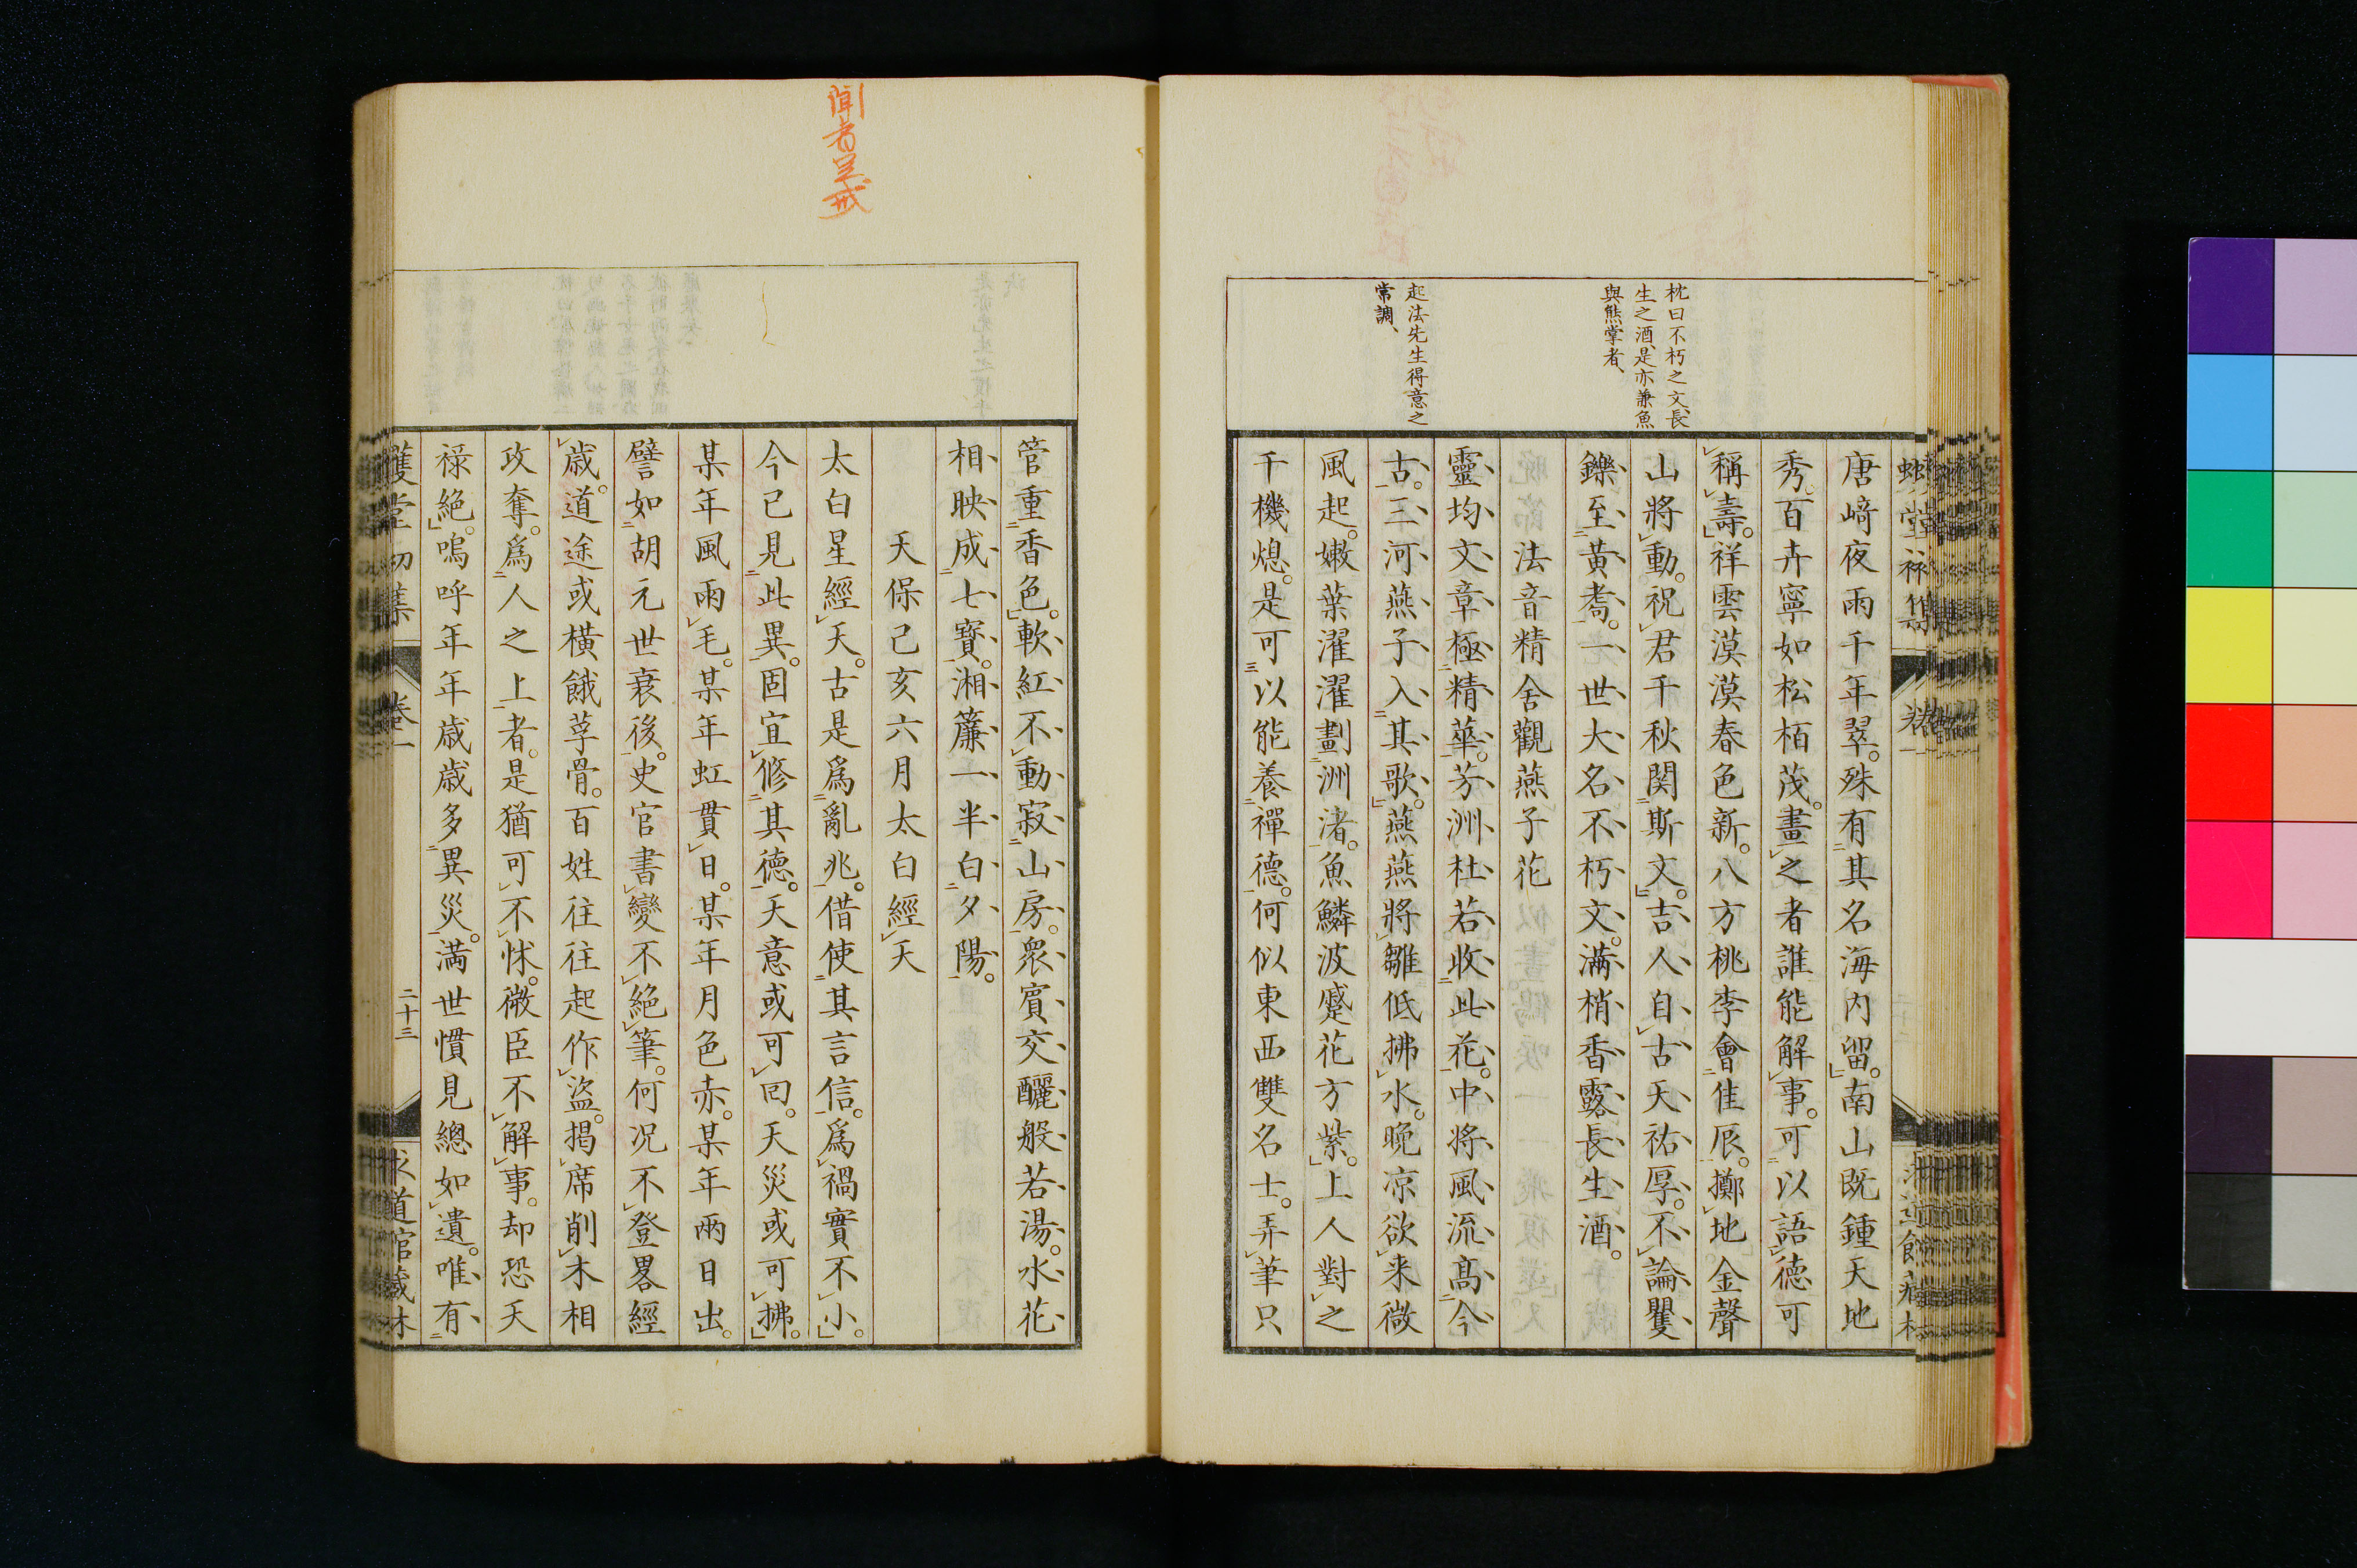 枕曰不朽之文、長
生之酒、是亦兼魚
與熊掌者、
起法先生得意之
常調、
唐﨑夜雨千年翠。殊有其名海内留。南山既鍾天地
秀。百卉寧如松栢茂。畫之者誰能解事。可以語德可
稱壽。祥雲漠漠春色新。八方桃李會佳辰。擲地金聲
山將動。祝君千秋関斯文。吉人自古天祐厚。不論矍
鑠至黃耉。一世大名不朽文。滿梢香露長生酒。
晩節法音精舍觀燕子花
靈均文章極精華。芳洲杜若收此花。中將風流髙今
古。三河燕子入其歌。燕燕將雛低拂水。晩凉欲来微
風起。嫩葉濯濯劃洲渚。魚鱗波蹙花方紫。上人對之
千機熄。是可以能養禪德。何似東西雙名士。弄筆只
管重香色。軟紅不動寂山房。衆賓交釃般若湯。水花
相映成七寶。湘簾一半白夕陽。
天保己亥六月太白經天
太白星經天。古是爲亂兆。借使其言信。爲禍實不小。
今已見此異。固宜修其德。天意或可回。天災或可拂。
某年風雨毛。某年虹貫日。某年月色赤。某年兩日出。
譬如胡元世衰後。史官書變不絕筆。何况不登畧經
歳。道途或橫餓莩骨。百姓往往起作盜。揭席削木相
攻奪。爲人之上者。是猶可不怵。微臣不解事。却恐天
禄絕。嗚呼年年歳歳多異災。滿世慣見總如遺。唯有
卷一
二十三
求道館藏本
聞者足戒